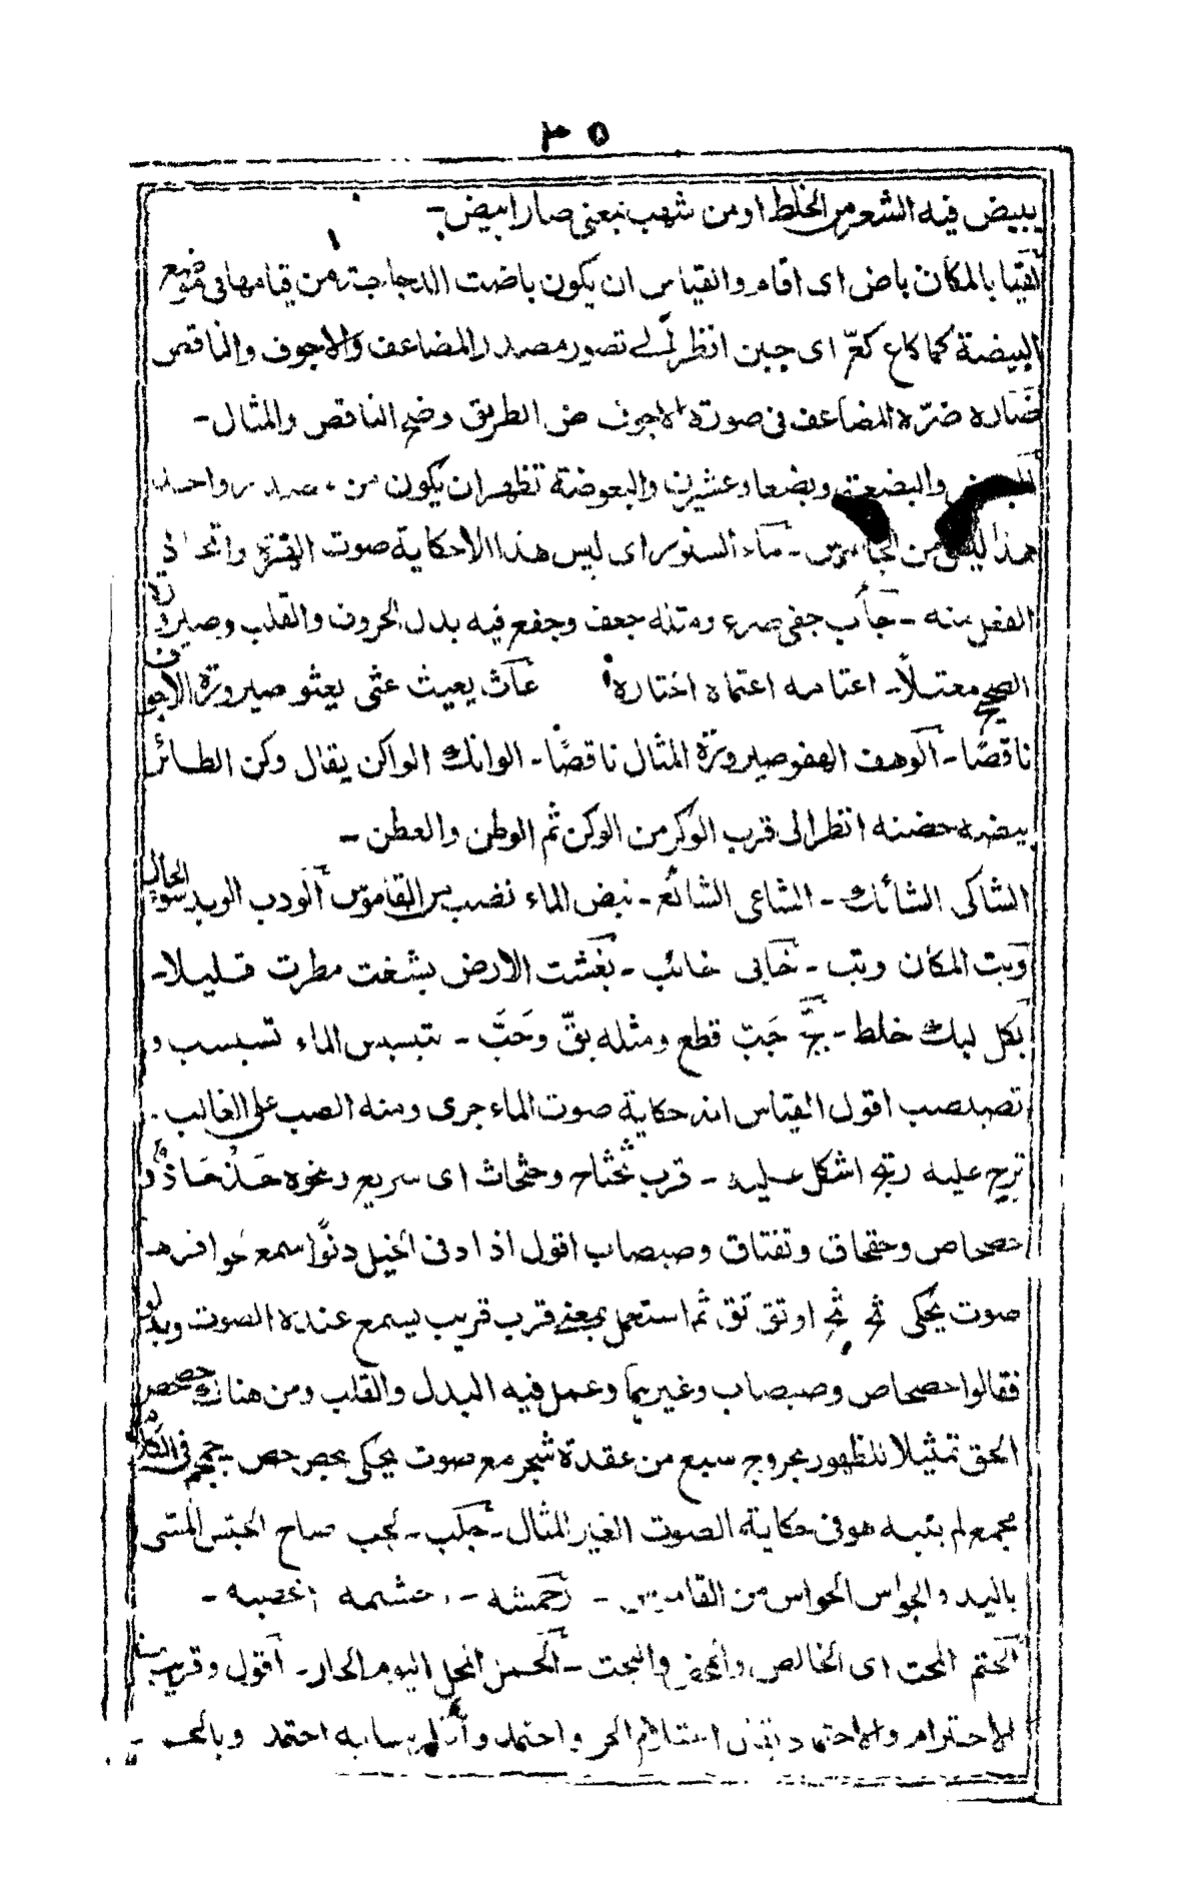 ٣٥
يبيض فيه الشعر من الخلط او من شهب بمعنى صار ابيض۔
القيا بالمكان باض اى اقام والقياس ان يكون باضت الدجاجة من قيامها فى موضع
البيضة كما كاع كعّ اى جبن انظر الى تصور مصدر المضاعف والاجوف والناقص
ضاره ضرّه المضاعف فى صورة الاجوف ض الطريق وضح الناقص والمثال۔
والبضعة وبضعا وعشرين والبعوضة تظهر ان يكون من مصدر واحد
هذا من القاموس ۔ ماء السنور اى ليس هذا الا حكاية صوت الهرة واتخاذ
الفعل منه ۔ جأب جفى صرع ومثله جعف وجفع فيه بدل الحروف والقلب وصيرورة
الصحيح معتلاً۔ اعتامه اعتماه اختاره عاث يعيث عثى يعثو صيرورة الاجوف
ناقصًا۔ الوهف الهفو صيرورة المثال ناقصًا۔ الوانك الواكن يقال وكن الطائر
بيضه حضنه انظر الى قرب الوكر من الوكن ثم الوطن والعطن ۔
الشاكى الشائك ۔ الشاعى الشائع ۔ نبض الماء نضب من القاموس الودب الوبد سوء الحال
وبت المكان وتب ۔ خابى خائب ۔ بغشت الارض بشغت مطرت قليلا۔
بكل لبك خلط ۔ بجّ جَبّ قطع ومثله بقّ وحَبّ ۔ تبسبس الماء تسبسب و
تصبصب اقول القياس انه حكاية صوت الماء جرى ومنه الصب على الغالب .
تربج عليه رتبج اشكل عليه ۔ قرب ثحثاح وحثحاث اى سريع ونحوه حَذحَاذ و
حصحاص وحقحاق وتقتاق وصبصاب اقول اذا دنى الخيل دنوًا سمع حوافرها
صوت يحكى ثح ثح او تق تق ثم استعمل بمعنى قرب قريب يسمع عنده الصوت وبدلو
فقالوا حصحاص وصبصاب وغيرهما وعمل فيه البدل والقلب ومن هناك حصحص
الحق تمثيلا للظهور بخروج سبع من عقدة شجر مع صوت يحكى بحص حص جمجم فى الكلام
مجمع لم يبنه هو فى حكاية الصوت الغير المثال ۔ جلب ۔ لجب صاح الجس المسّ
باليد والجواس الحواس من القاموس ۔ حمشه ۔ حشمه اغضبه ۔
الحتم المحت اى الخالص والمحض والبحت ۔ الحمل المحل اليوم الحار ۔ اقول وقريب منه
الاحترام والاحتماد يقال اشتد الحر واحتمد وبالحمد ۔